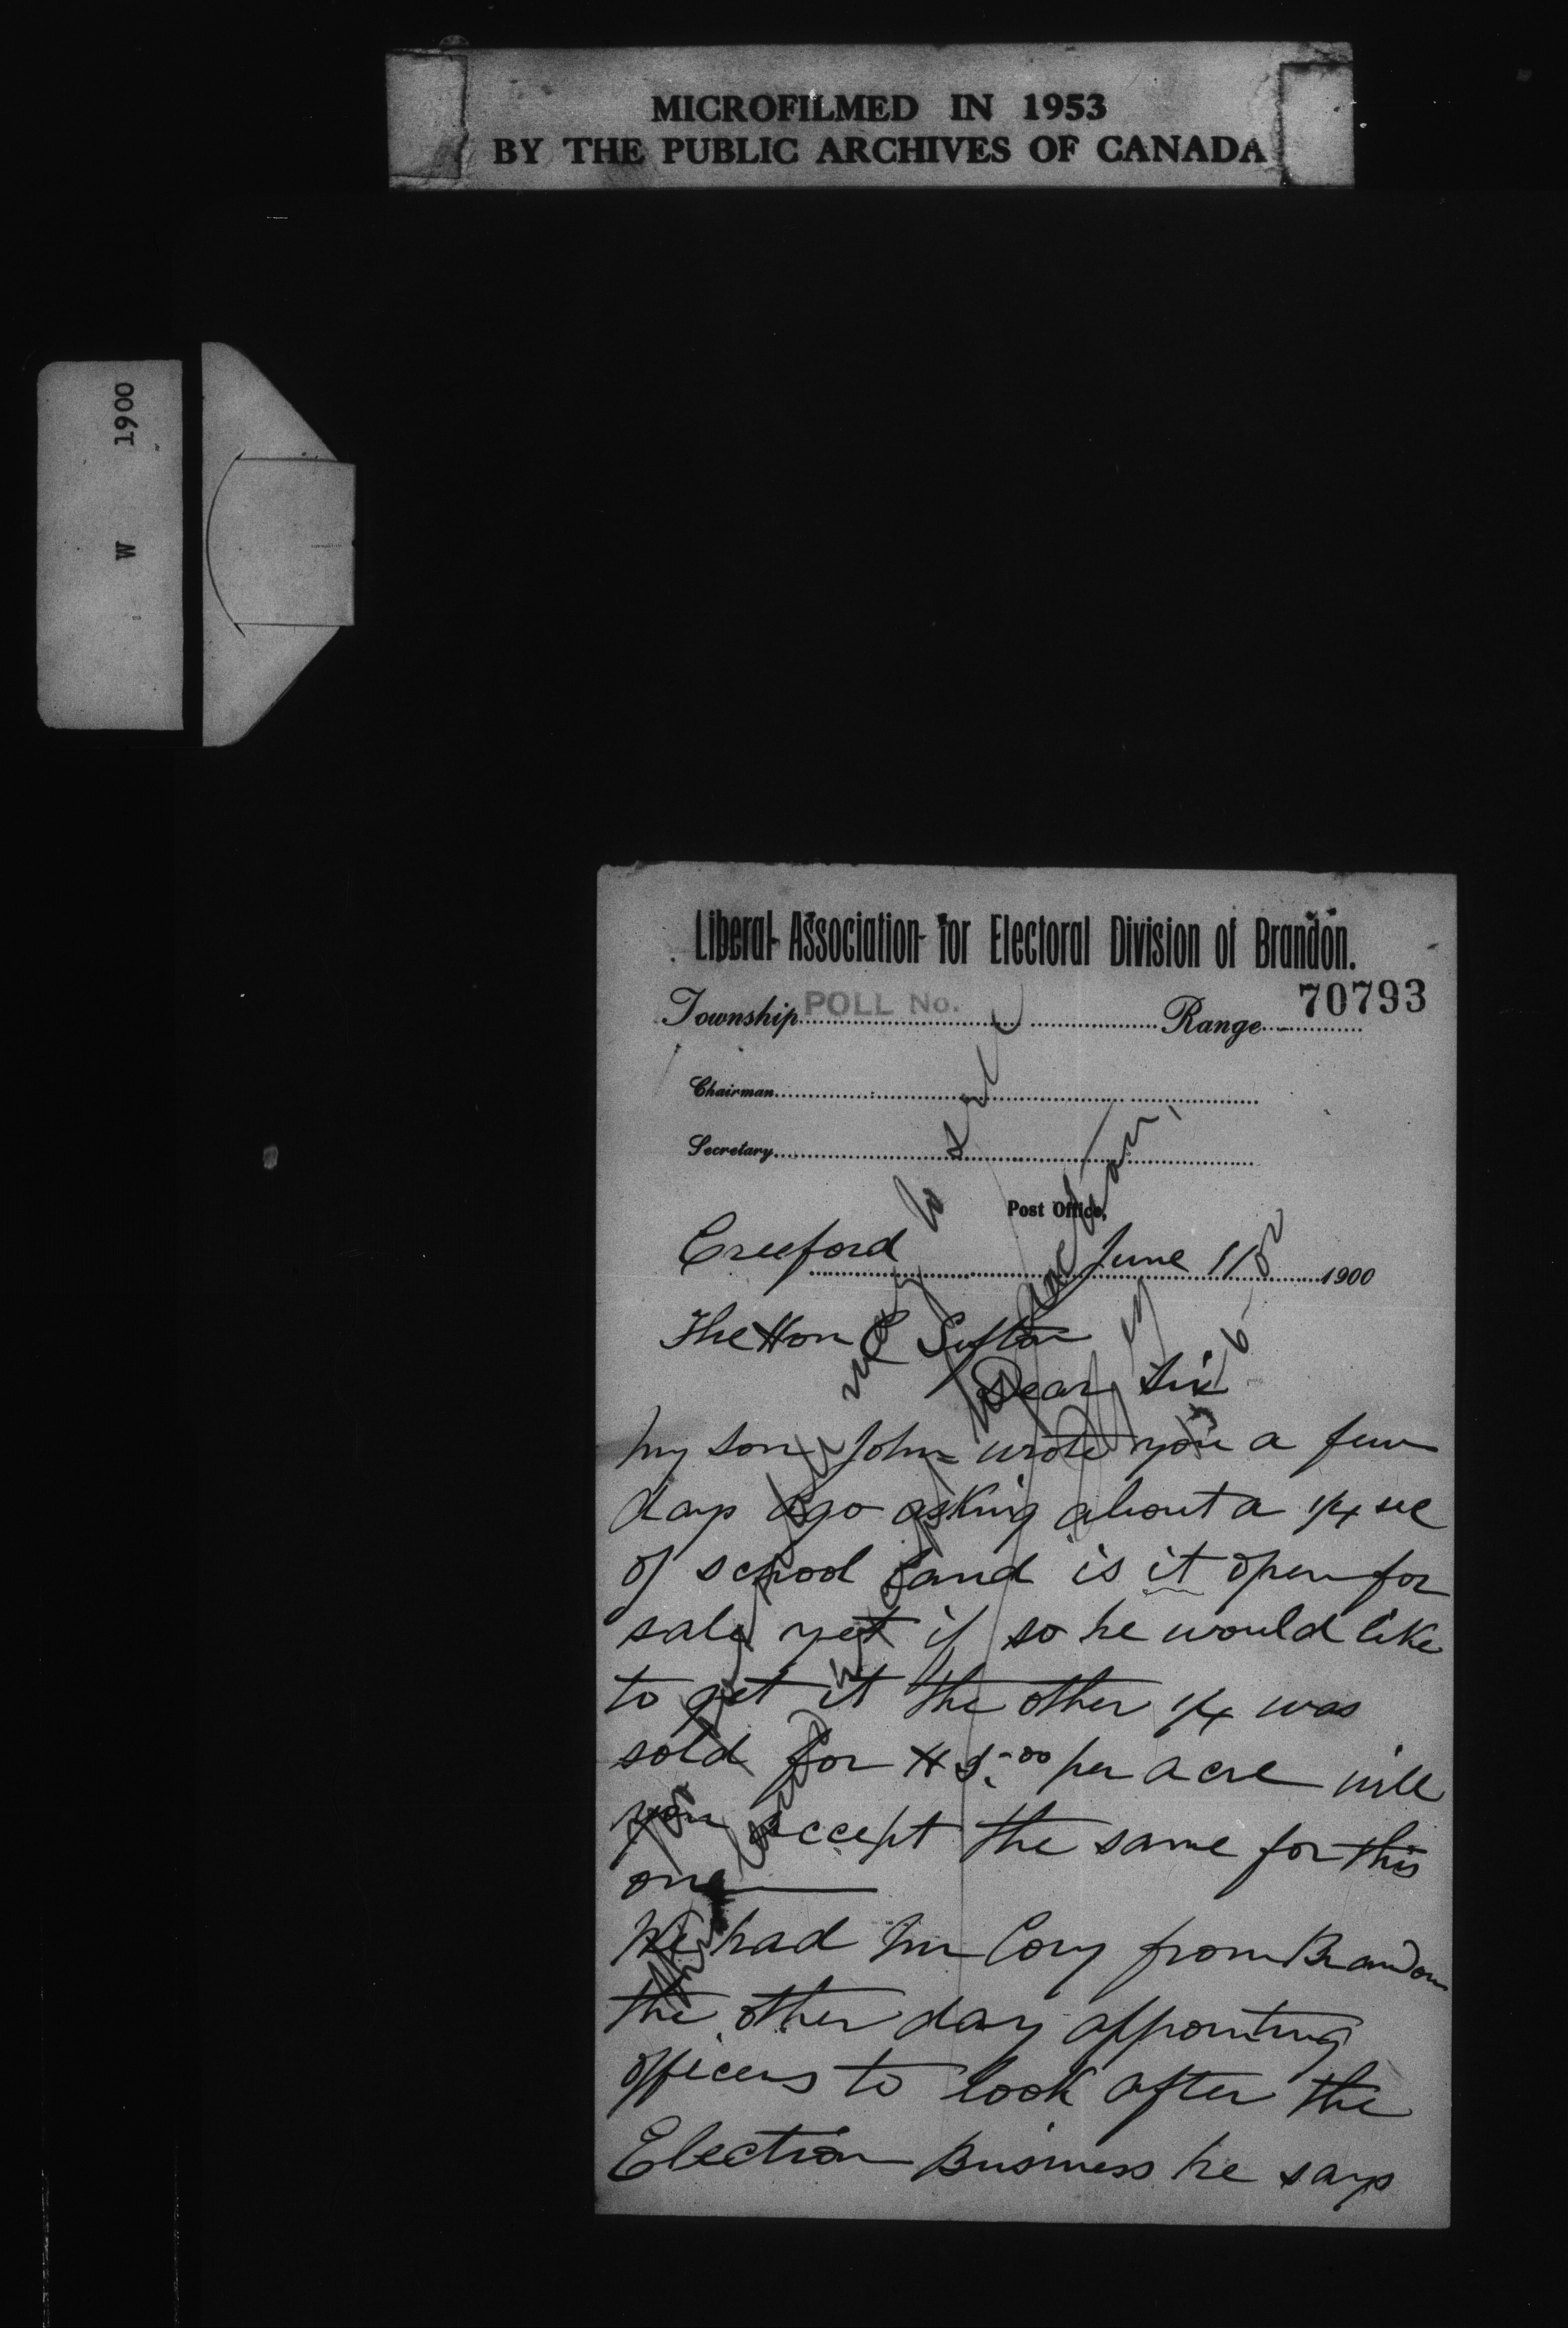 MICROFILMED IN 1953
BY THE PUBLIC ARCHIVES OF CANADA
W 1900
Liberal Association for Electoral Division of Brandon.
70793
Township POLL No. Range
Chairman
Secretary
Post Office,
Creeford June 1900
The Hon C Sifton
Dear Sir
My son John wrote you a few
days ago asking about a 1/4 sec
of school land is it open for
sale yet if so he would like
to get it the other 1/4 was
sold for per acre will
you accept the same for this
one
We had Mr Cory from Brandon
the other day appointing
officers to look after the
Election Business he says